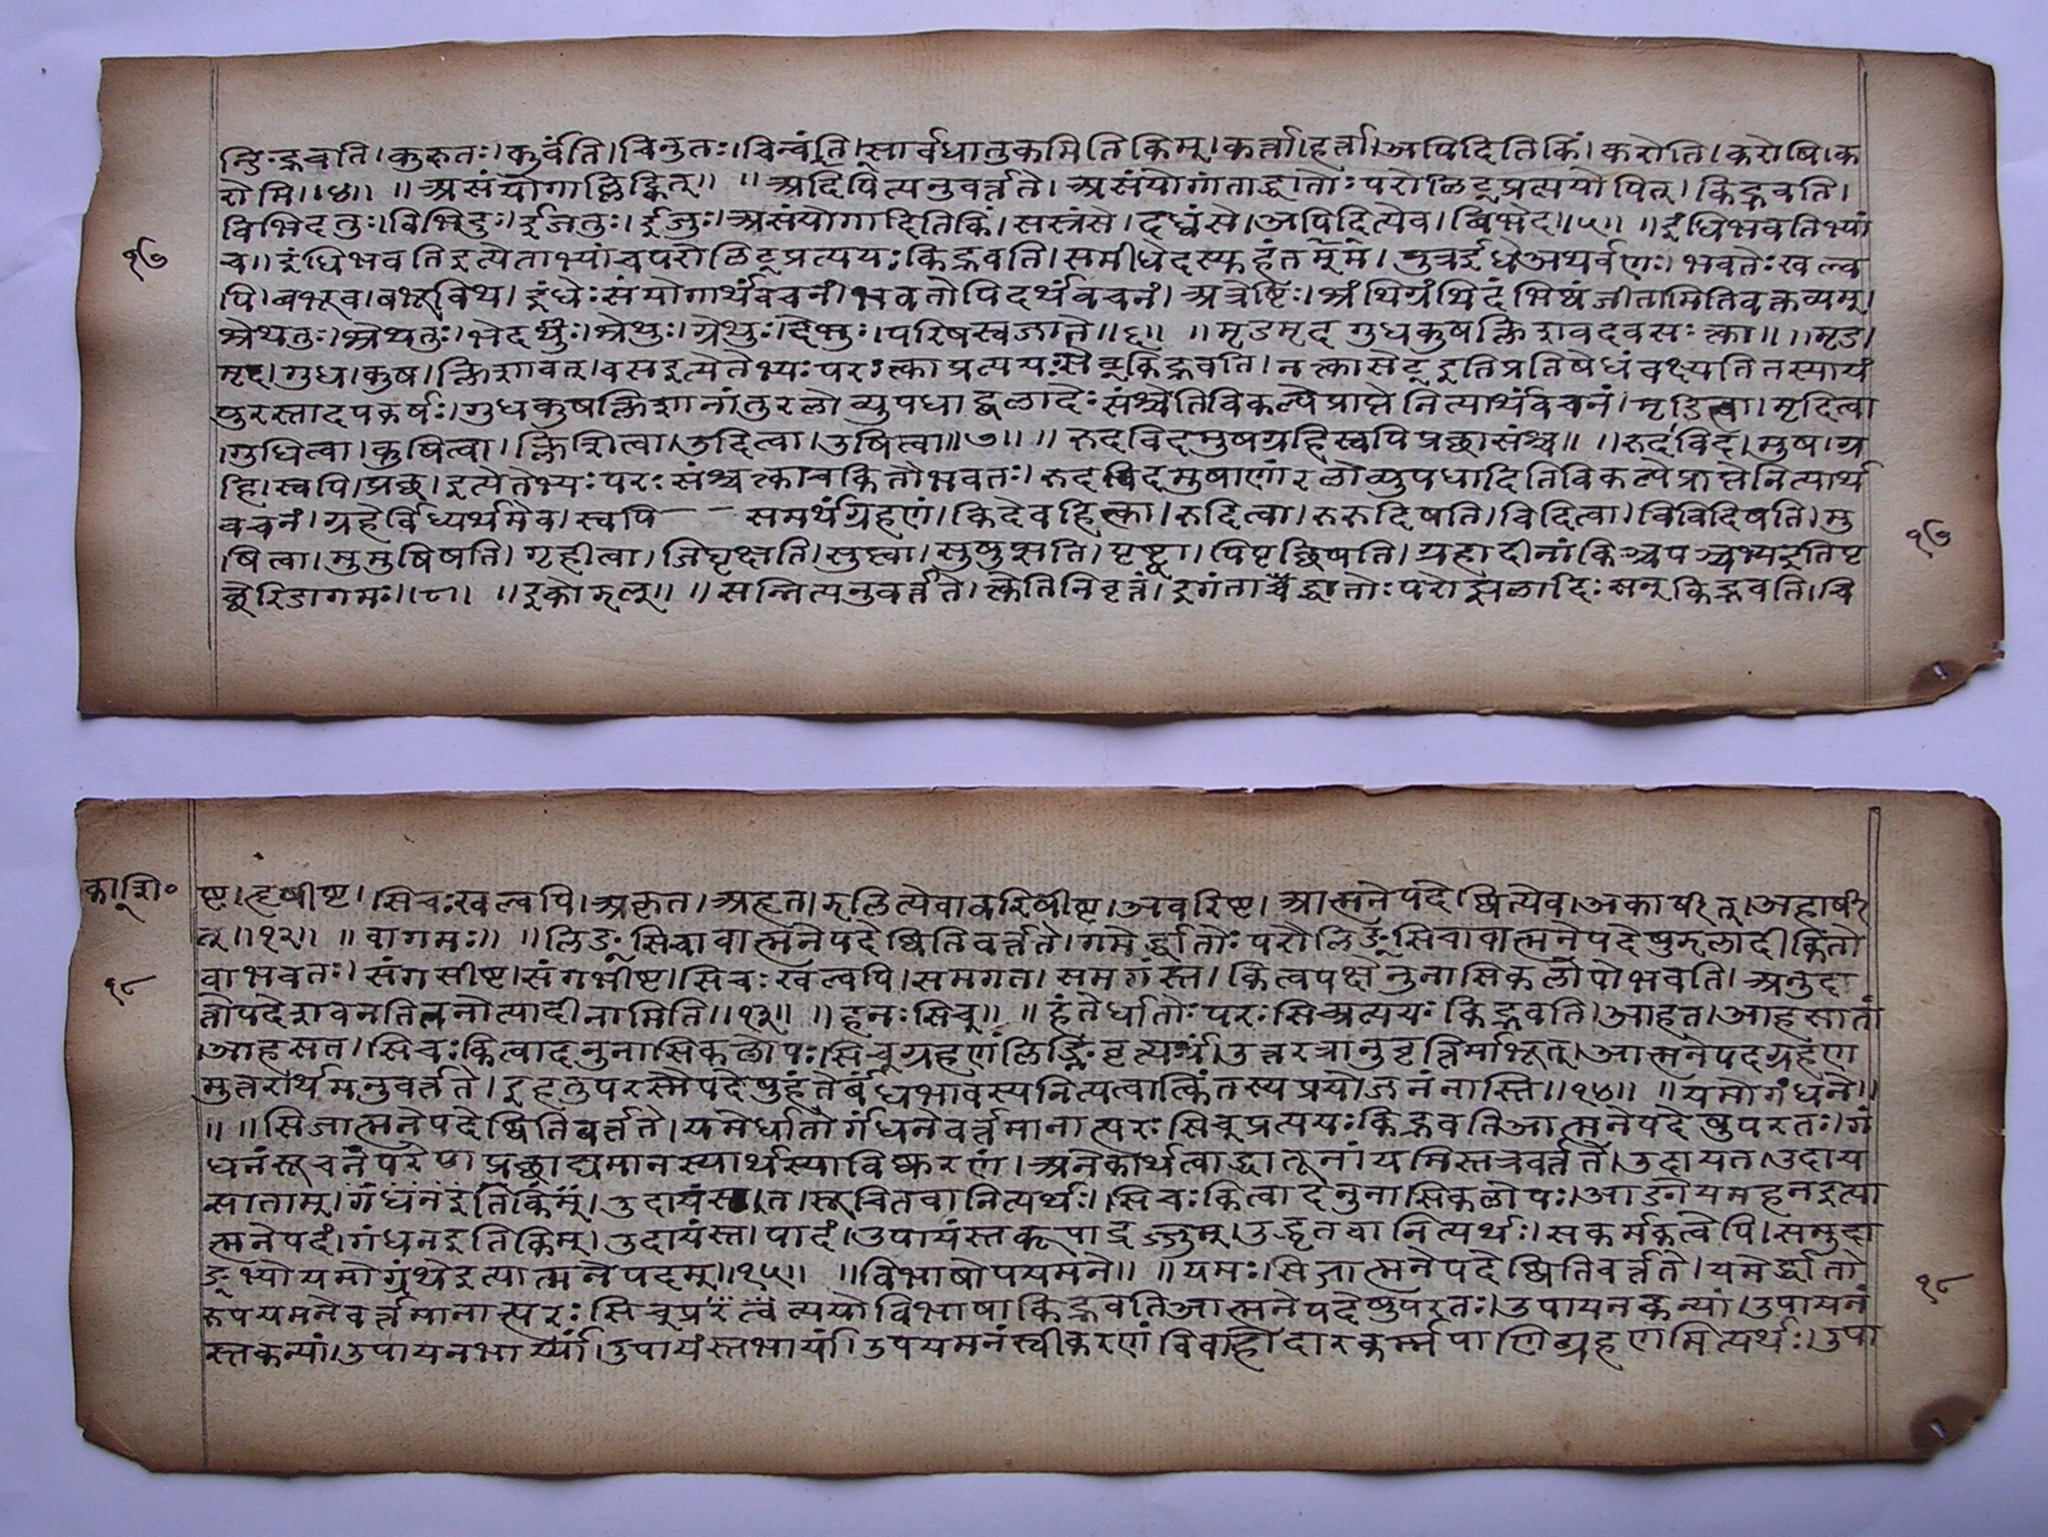 न्ङिद्भवति।कुरुतः।कुर्वंति।चिनुतः।चिन्वंति।सार्वधातुकमितिकिम्।कर्त्ता।हर्त्ता।अपिदितिकिं।करोति।करोषि।क
रोमि॥४॥ ॥असंयोगाल्लिट्कित्॥ ॥अपिदित्यनुवर्त्तते।असंयोगांताद्धातोःपरोलिट्प्रत्ययोपित्।किद्भवति।
बिभिदतुः।बिभिदुः।ईजतुः।ईजुः।असंयोगादितिकिं।सस्रंसे।दध्वंसे।अपिदित्येव।बिभेद॥५॥ ॥इंधिभवतिभ्यां
च॥इंधिभवतिइत्येताभ्यांचपरोलिट्प्रत्ययःकिद्भवति।समीधेदस्युहंतमम्।पुत्रईधेअथर्वणः।भवतेःखल्व
पि।बभूव।बभूविथ।इंधेःसंयोगार्थंवचनं।भवतेःपिदर्थंवचनं।अत्रेष्टिः।श्रंथिग्रंथिदंभिष्वंजीनामितिवक्तव्यम्।
श्रेथतुः।श्रेथुः।ग्रेथुः।देभुः।परिषस्वजाते॥६॥ ॥मृडमृदगुधकुषक्लिशवदवसःक्त्वा॥ ॥मृड।
मृद।गुध।कुष।क्लिश।वद।वसइत्येतेभ्यःपरःक्त्वाप्रत्ययःकिद्भवति।नक्त्वासेट्इतिप्रतिषेधंवक्ष्यतितस्यायं
पुरस्तादपकर्षः।गुधकुषक्लिशानांतुरलोव्युपधाद्धलादेःसंश्चेतिविकल्पेप्राप्तेनित्यार्थंवचनं।मृडित्वा।मृदित्वा
।गुधित्वा।कुषित्वा।क्लिशित्वा।उदित्वा।उषित्वा॥७॥ ॥रुदविदमुषग्रहिस्वपिप्रच्छःसंश्च॥ ॥रुद।विद।मुष।ग्र
हि।स्वपि।प्रच्छ।इत्येतेभ्यःपरःसंश्चक्त्वाचकितौभवतः।रुदविदमुषाणांरलोव्युपधादितिविकल्पेप्राप्तेनित्यार्थं
वचनं।ग्रहेर्विध्यर्थमेव।स्वपि– –समर्थंग्रहणं।किदेवहिक्त्वा।रुदित्वा।रुरुदिषति।विदित्वा।विविदिषति।मु
षित्वा।मुमुषिषति।गृहीत्वा।जिघृक्षति।सुप्त्वा।सुषुप्सति।पृष्ट्वा।पिपृच्छिषति।ग्रहादीनांकिश्चपञ्चभ्यइतिपृ
च्छेरिडागमः॥८॥ ॥इकोझल्॥ ॥सन्नित्यनुवर्त्तते।क्त्वेतिनिवृत्तं।इगंताद्धातोःपरोझलादिःसन्किद्भवति।चि
१७
१७
काशि॰
ष्ट।हृषीष्ट।सिचःखल्वपि।अकृत।अहृत।झलित्येव।वरिषीष्ट।अवरिष्ट।आत्मनेपदेष्वित्येव।अकार्षीत्।अहार्षी
त्॥१२॥ ॥वागमः॥ ॥लिङ्सिचावात्मनेपदेष्वितिवर्त्तते।गमेर्द्धातोःपरौलिङ्सिचावात्मनेपदेषुझलादीकितौ
वाभवतः।संगसीष्ट।संगंसीष्ट।सिचःखल्वपि।समगत।समगंस्त।कित्वपक्षेनुनासिकलोपोभवति।अनुदा
त्तोपदेशवनतितनोत्यादीनामिति॥१३॥ ॥हनःसिच्॥ ॥हंतेर्धातोःपरःसिच्प्रत्ययःकिद्भवति।आहत।आहसातां
।आहसत।सिचःकित्वादनुनासिकलोपः।सिच्ग्रहणंलिङ्निवृत्यर्थं।उत्तरत्रानुवृत्तिर्माभूत्।आत्मनेपदग्रहण
मुत्तरार्थमनुवर्त्तते।इहतुपरस्मैपदेषुहंतेर्वधभावस्यनित्यत्वात्किंतस्यप्रयोजनंनास्ति॥१४॥ ॥यमोगंधने॥
॥ ॥सिजात्मनेपदेष्वितिवर्त्तते।यमेर्धातोर्गंधनेवर्त्तमानात्परःसिच्प्रत्ययःकिद्भवतिआत्मनेपदेषुपरतः।गं
धनंसूचनंपरेणप्रच्छाद्यमानस्यार्थस्याविष्करणं।अनेकार्थत्वाद्धातूनांयमिस्तत्रवर्त्तते।उदायत।उदाय
साताम्।गंधनइतिकिम्।उदायंस्त।त।सूचितवानित्यर्थः।सिचःकित्वादनुनासिकलोपः।आङोयमहनइत्या
त्मनेपदं।गंधनइतिकिम्।उदायंस्त।पादं।उपायंस्तकूपाद्रज्जुम्।उद्धृतवानित्यर्थः।सकर्मकत्वेपि।समुदा
ङ्भ्योयमोग्रंथेइत्यात्मनेपदम्॥१५॥ ॥विभाषोपयमने॥ ॥यमःसिजात्मनेपदेष्वितिवर्त्तते।यमेर्द्धातो
रुपयमनेवर्त्तमानात्परःसिच्प्रत्ययोविभाषाकिद्भवतिआत्मनेपदेषुपरतः।उपायतकन्यां।उपायनं
स्तकन्यां।उपायतभार्य्यां।उपायंस्तभार्यां।उपयमनंस्वीकरणंविवाहोदारकर्म्मपाणिग्रहणमित्यर्थः।उपा
१८
१८